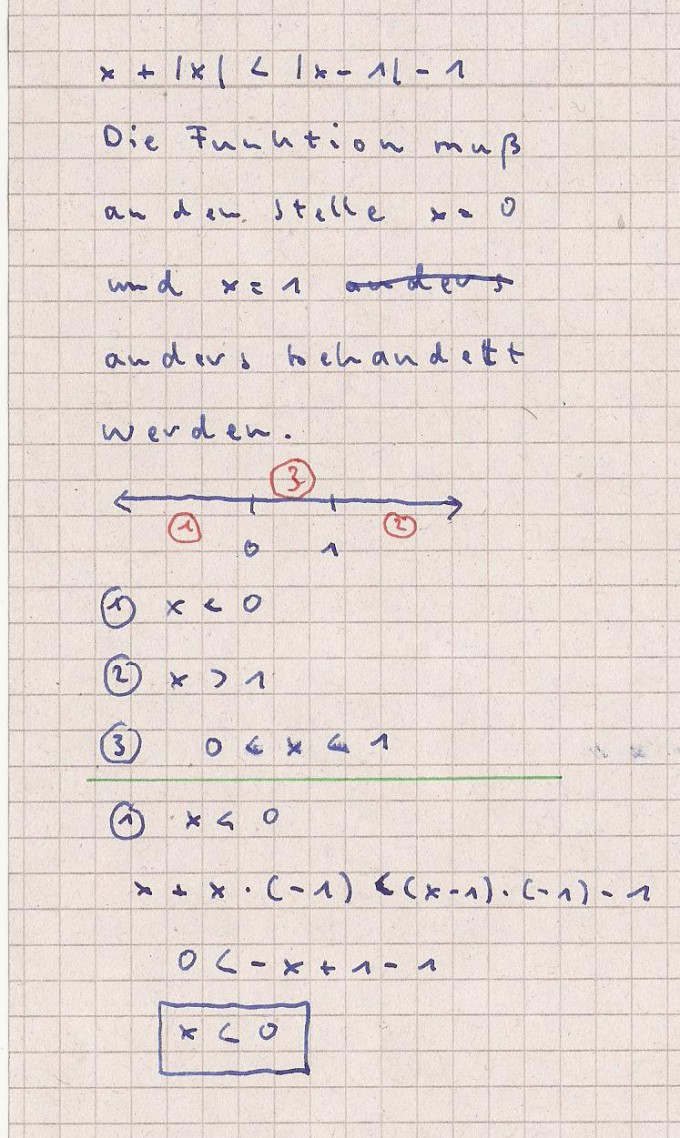 x + |x| < |x - 1| - 1
Die Funktion muß
an den Stelle x = 0
und x = 1 anders
anders behandelt
werden.
3
1 2
0 1
① x < 0
② x > 1
③ 0 ≤ x ≤ 1
① x < 0
x + x · (-1) < (x-1) · (-1) - 1
0 < - x + 1 - 1
x < 0